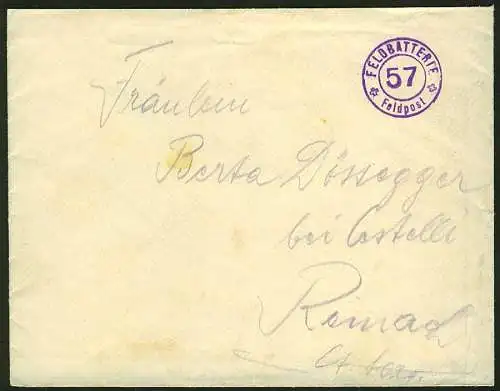 FELDBATTERIE
57
Feldpost
Fräulein
Berta Dössegger
bei Costelli
Reinach